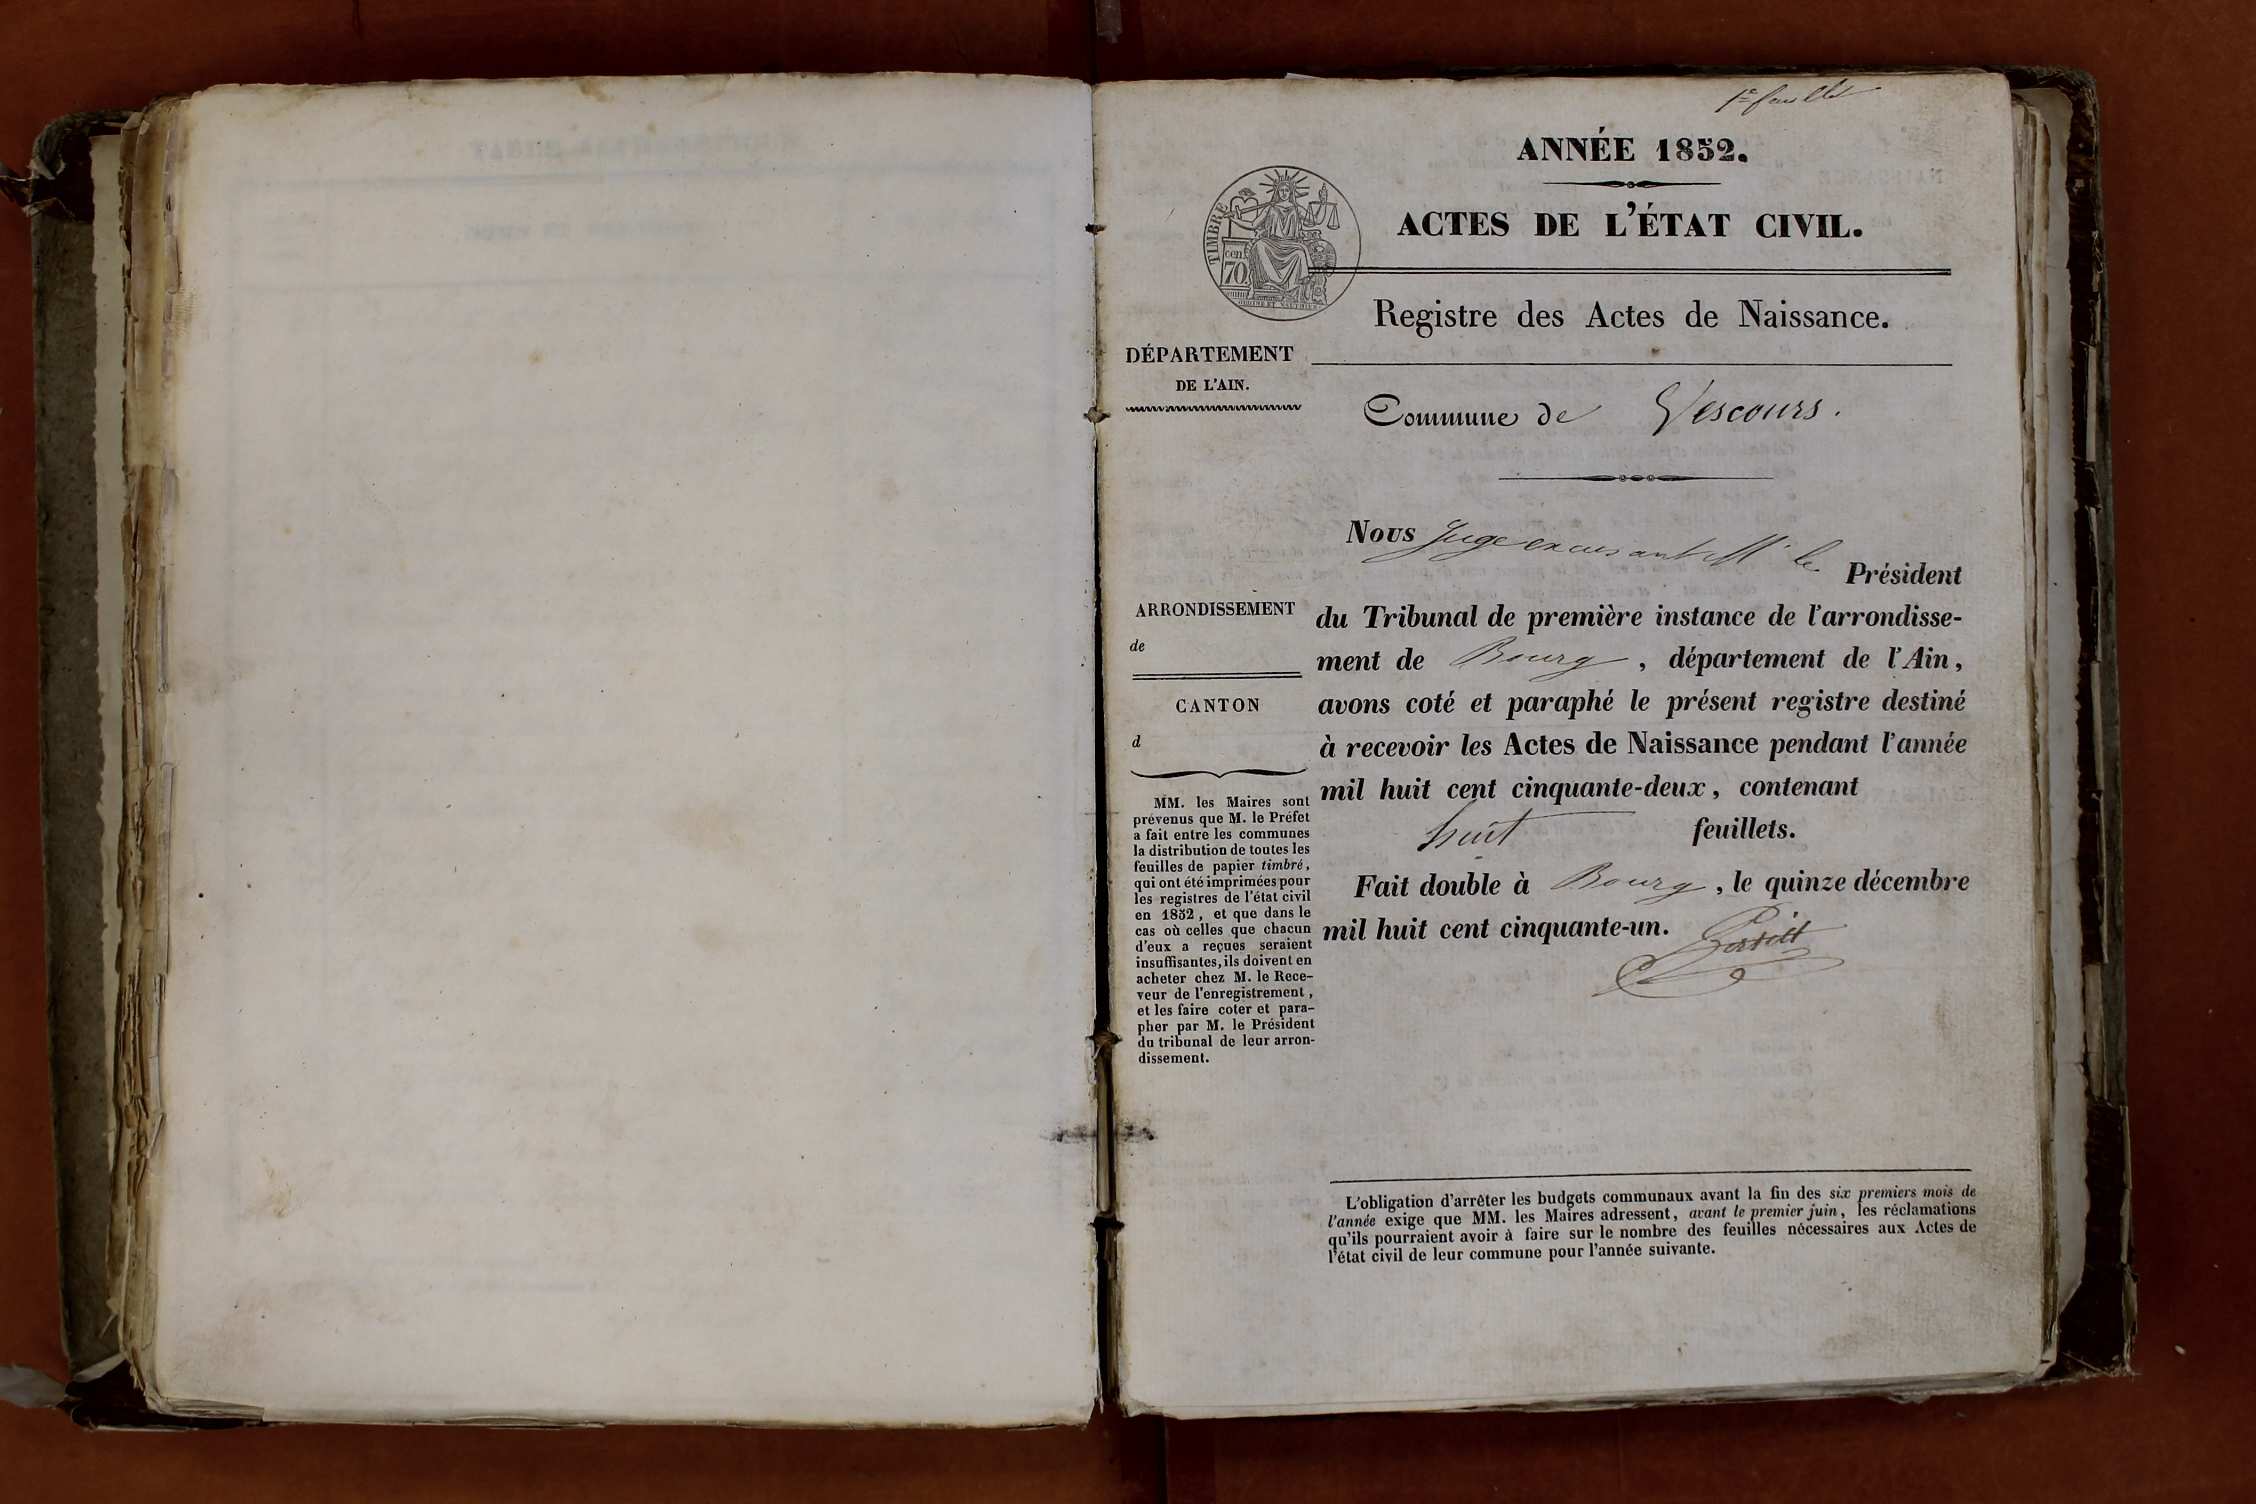 1er feuillet
ANNÉE 1852.
ACTES DE L'ÉTAT CIVIL.
TIMBRE
cen.
70
Registre des Actes de Naissance.
DÉPARTEMENT
DE L'AIN.
Commune de Vescours.
Nous Juge excusant Mr le
Président
du Tribunal de première instance de l'arrondisse-
ment de Bourg, département de l'Ain,
avons coté et paraphé le présent registre destiné
à recevoir les Actes de Naissance pendant l'année
mil huit cent cinquante-deux, contenant
huit feuillets.
Fait double à Bourg, le quinze décembre
mil huit cent cinquante-un.
ARRONDISSEMENT
de
CANTON
d
MM. les Maires sont
prévenus que M. le Préfet
a fait entre les communes
la distribution de toutes les
feuilles de papier timbré,
qui ont été imprimées pour
les registres de l'état civil
en 1852, et que dans le
cas où celles que chacun
d'eux a reçues seraient
insuffisantes, ils doivent en
acheter chez M. le Rece-
veur de l'enregistrement,
et les faire coter et para-
pher par M. le Président
du tribunal de leur arron-
dissement.
L'obligation d'arrêter les budgets communaux avant la fin des six premiers mois de
l'année exige que MM. les Maires adressent, avant le premier juin, les réclamations
qu'ils pourraient avoir à faire sur le nombre des feuilles nécessaires aux Actes de
l'état civil de leur commune pour l'année suivante.